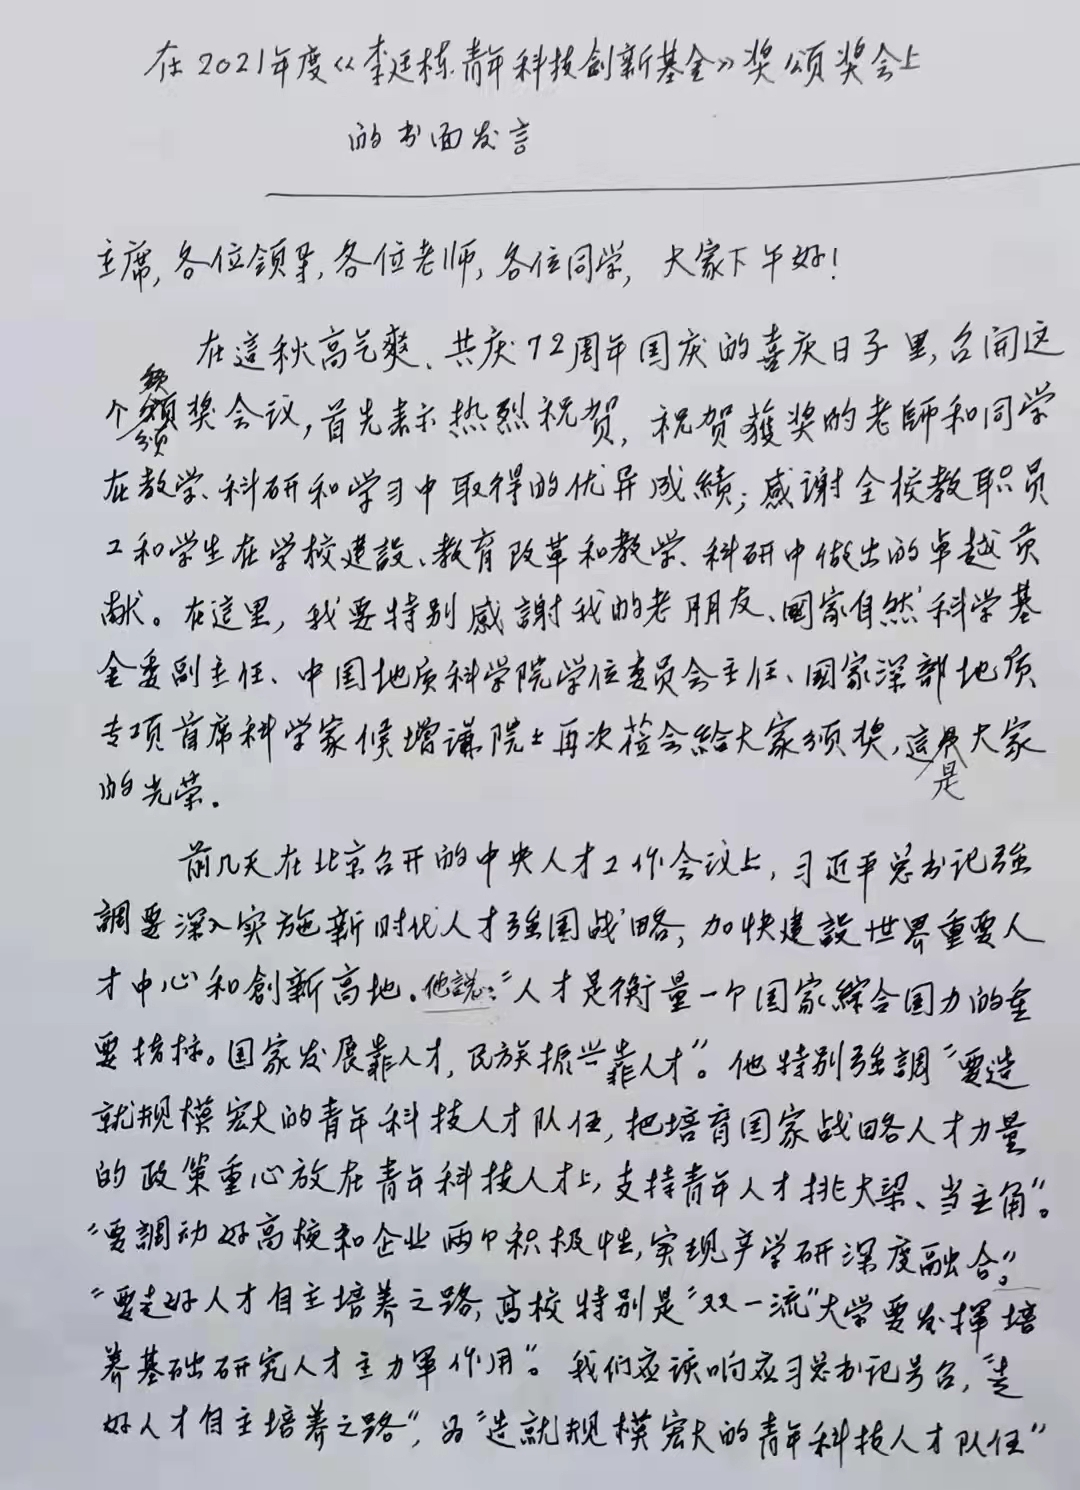 在2021年度《李廷栋青年科技创新基金》奖颁奖会上
的书面发言
主席,各位领导,各位老师,各位同学,大家下午好!
在這秋高气爽、共庆72周年国庆的喜庆日子里,召开这
个颁奖会议,首先表示热烈祝贺,祝贺獲奖的老師和同学
在教学、科研和学习中取得的优异成績;感谢全校教职员
工和学生在学校建設、教育改革和教学、科研中做出的卓越贡
献。在這里,我要特别感謝我的老朋友、國家自然科学基
金委副主任、中国地质科学院学位委员会主任、国家深部地质
专项首席科学家候增谦院士再次莅会給大家颁奖,這是大家
的光荣。
前几天在北京召开的中央人才工作会议上,习近平总书记强
調要深入实施新时代人才强国战略,加快建設世界重要人
才中心和創新高地。他説:"人才是衡量一个国家綜合国力的重
要指标。国家发展靠人才,民族振兴靠人才"。他特别强調"要造
就规模宏大的青年科技人才队伍,把培育国家战略人才力量
的政策重心放在青年科技人才上,支持青年人才挑大梁、当主角"。
"要調动好高校和企业两个积极性,实现产学研深度融合。"
"要走好人才自主培养之路,高校特别是"双一流"大学要发挥培
养基础研究人才主力軍作用"。我们应该响应习总书记号召,"走
好人才自主培养之路",为"造就规模宏大的青年科技人才队伍"